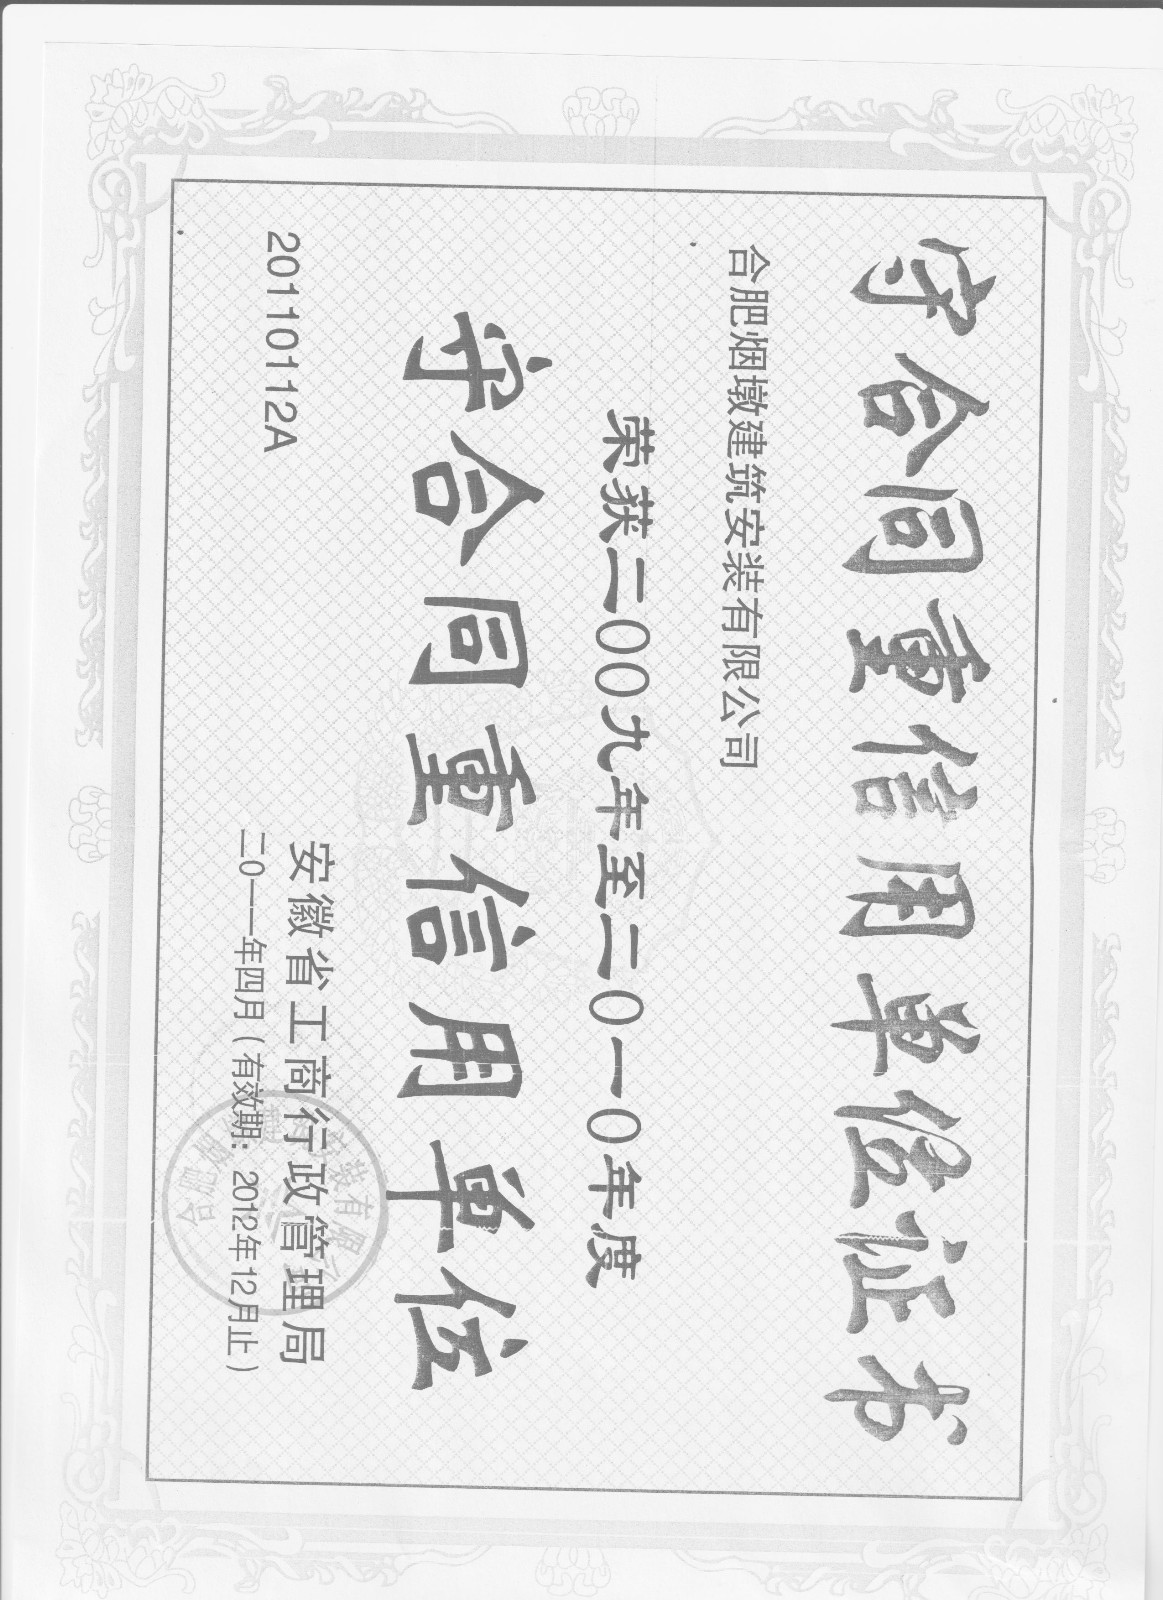 守合同重信用单位证书
合肥烟墩建筑安装有限公司
荣获二〇〇九年至二〇一〇年度
守合同重信用单位
20110112A
安徽省工商行政管理局
二〇一一年四月(有效期:2012年12月止)